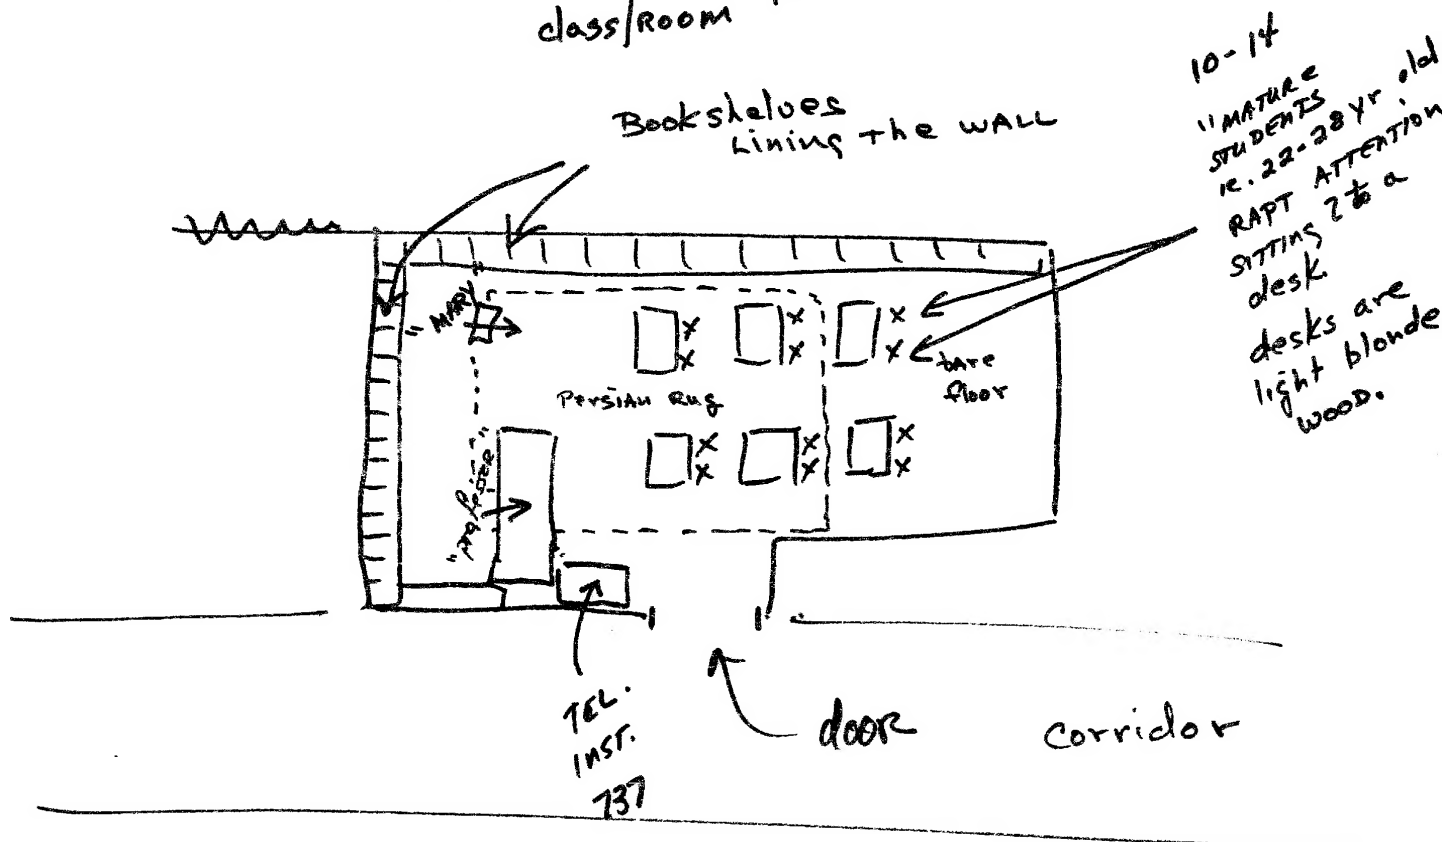 class/ROOM
Bookshelves
Lining The WALL
10-14
"MATURE
STUDENTS
ie. 22-28 yr old
RAPT ATTENTION
SITTING 2 to a
desk.
desks are
light blonde
WOOD.
"MARY
bare
floor
Persian Rug
"professor"
TEL.
INST.
737
door
corridor